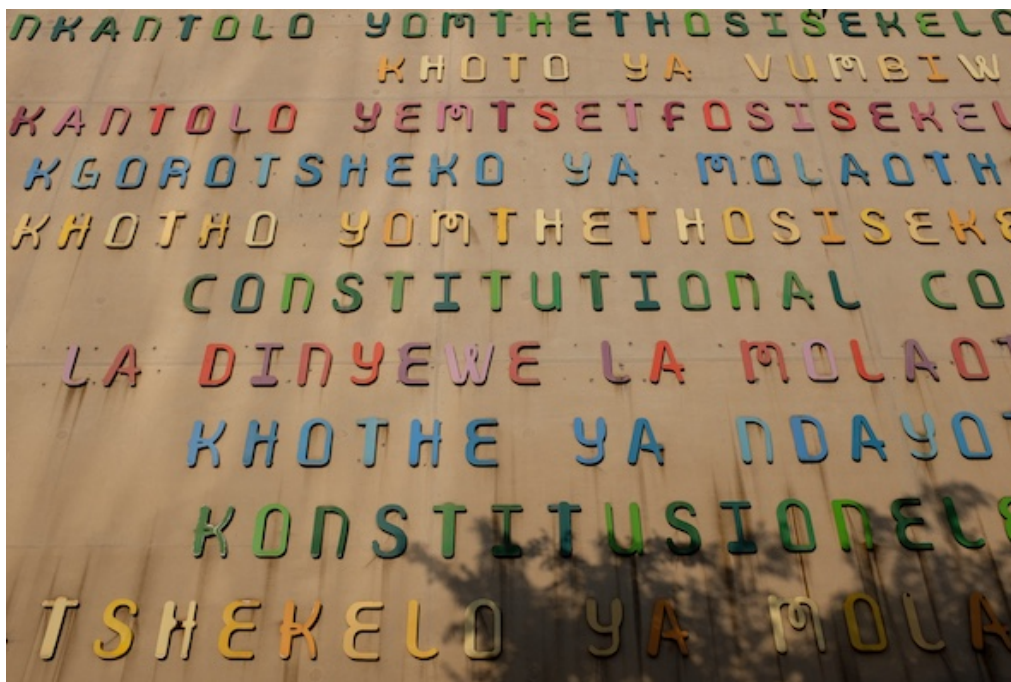 NKANTOLO YOMTHETHOSISEKELO
KHOTO YA VUMBIW
KANTOLO YEMTSETFOSISEKEL
KGOROTSHEKO YA MOLAOTH
KHOTHO YOMTHETHOSISEKE
CONSTITUTIONAL CO
LA DINYEWE LA MOLAOT
KHOTHE YA NDAYOT
KONSTITUSIONELE
TSHEKELO YA MOLA